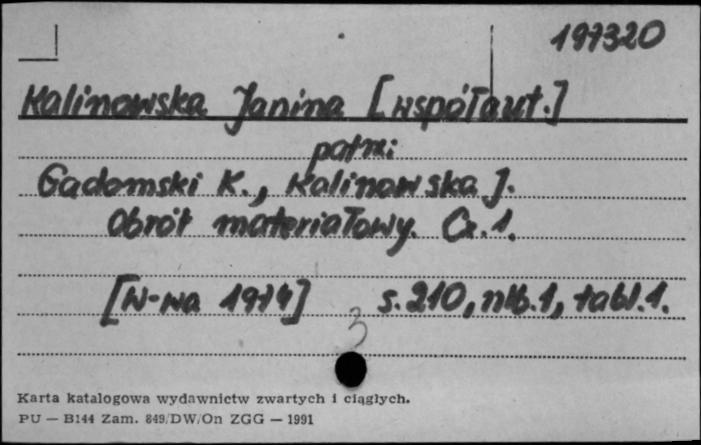 197320
Kalinowska Janina [współaut.]
patrz:
Gadomski K., Kalinowska J.
Obrót materiałowy. Cz.1.
[W-wa 1974] s.210, nlb.1, tabl.1.
3
Karta katalogowa wydawnictw zwartych i ciągłych.
PU — B144 Zam. 849/DW/On ZGG — 1991